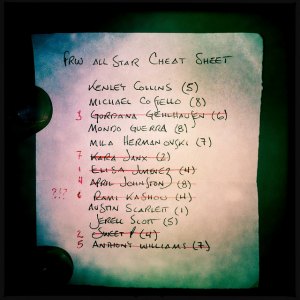 PRW ALL STAR CHEAT SHEET
KENLEY COLLINS (5)
MICHAEL COSTELLO (8)
3 GORDANA GEHLHAUSEN (6)
MONDO GUERRA (8)
MILA HERMANOVSKI (7)
7 KARA JANX (2)
1 ELISA JIMENEZ (4)
4 APRIL JOHNSTON (8)
?!? 6 RAMI KASHOU (4)
AUSTIN SCARLETT (1)
JERELL SCOTT (5)
2 SWEET P (4)
5 ANTHONY WILLIAMS (7)